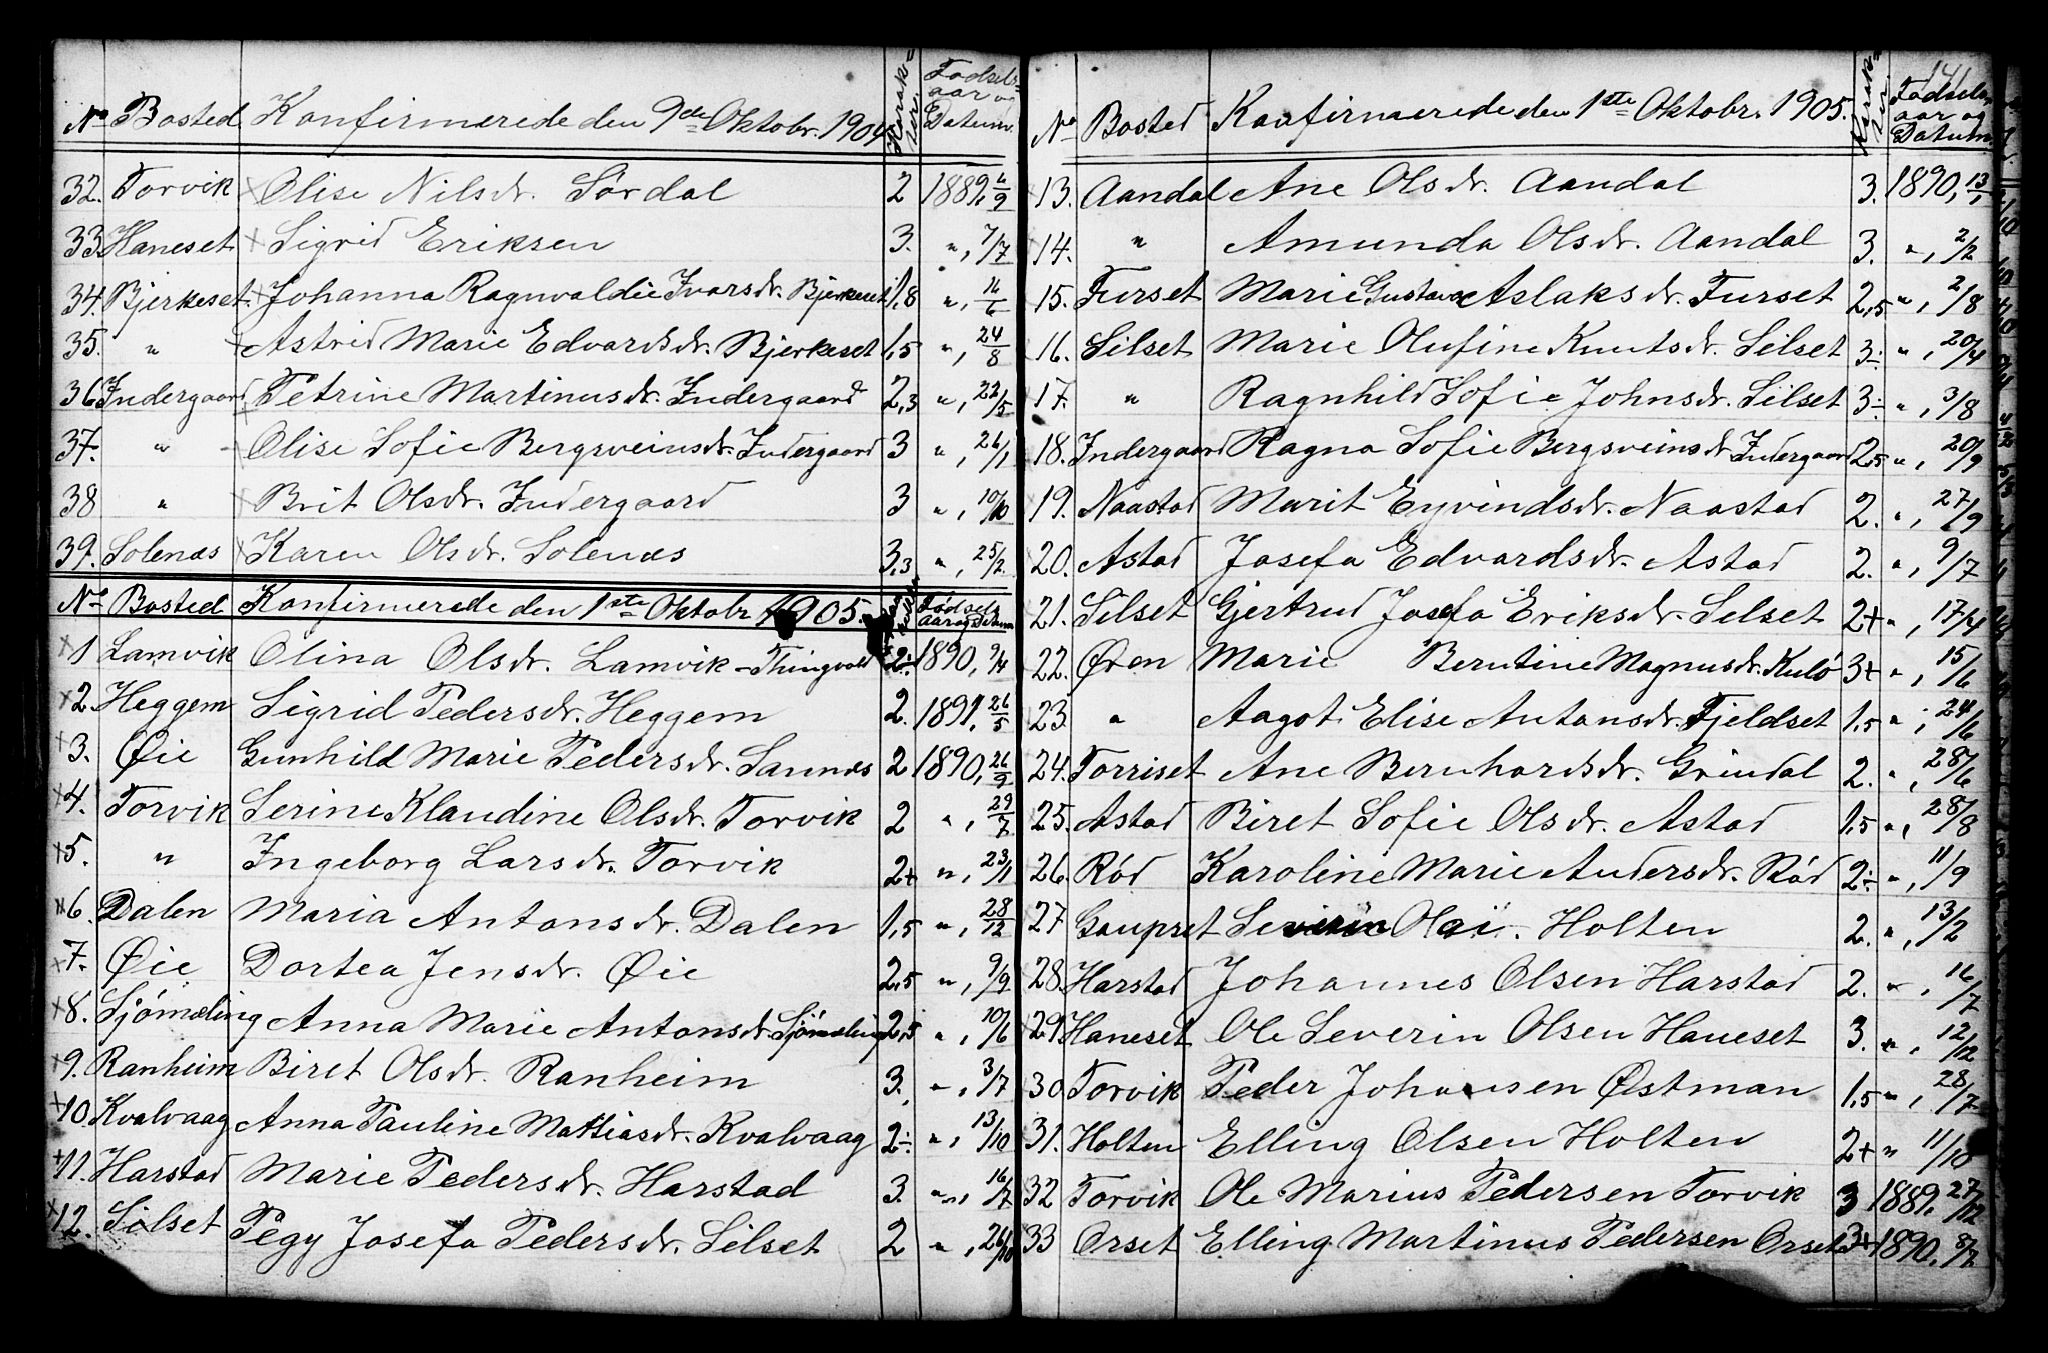 No Bosted Konfirmerede den 9de Oktobr. 1904 Karakterer. Fødselsaar og Datum.
32. Torvik Olise Nilsdr. Sørdal 2 1889, 6/9
33 Haneset Sigrid Eriksen 3. ", 7/7
34. Bjerkeset Johanna Ragnvaldie Ivarsdr. Bjerkeset 1,8 ", 16/6
35. " Astrid Marie Edvardsdr. Bjerkeset 1,5 ", 24/8
36 Indergaard Petrine Martinusdr. Indergaard 2,3 ", 22/5
37. " Olise Sofie Bergsveinsdr. Indergaard 3 ", 26/1
38 " Brit Olsdr. Indergaard 3 ", 10/10
39. Solenæs Karen Olsdr. Solenæs 3,3 ", 25/2
No Bosted Konfirmerede den 1ste Oktobr 1905. Fødsels aar og Datum
1 Lamvik Olina Olsdr. Lamvik - Thingvold 2÷ 1890, 9/4
2. Heggem Sigrid Pedersdr. Heggem 2. 1891, 26/5
3. Øie Gunhild Marie Pedersdr. Sannæs 2 1890, 26/9
4. Torvik Serine Klaudine Olsdr. Torvik 2 ", 29/7
5. " Ingeborg Larsdr. Torvik 2+ ", 23/1
6. Dalen Maria Antonsdr. Dalen 1,5 ", 28/12
7. Øie Dortea Jensdr. Øie 2,5 ", 9/9
8. Sjømæling Anna Marie Antonsdr. Sjömæling 2,5 ", 10/6
9. Ranheim Biret Olsdr. Ranheim 3. ", 3/7
10. Kvalvaag Anna Pauline Mattiasdr. Kvalvaag 2÷ ", 13/10
11. Harstad Marie Pedersdr. Harstad 3. ", 16/7
12. Silset Pegy Josefa Pedersdr. Silset 2 ", 26/10
141
No Bosted Konfirmerede den 1ste Oktobr. 1905. Karakterer. Fødselsaar og Datum.
13. Aandal Ane Olsdr. Aandal 3. 1890, 13/1
14. " Amunda Olsdr. Aandal 3. ", 2/2
15. Furset Marie Gustava Aslaksdr. Furset 2,5 ", 2/8
16. Silset Marie Olufine Knutsdr. Silset 3÷ ", 20/4
17. " Ragnhild Sofie Johnsdr. Silset 3÷ ", 3/8
18. Indergaard Ragna Sofie Bergsveinsdr. Indergaard 2,5 ", 20/9
19. Naastad Marit Eyvindsdr. Naastad 2. ", 27/9
20. Astad Josefa Edvardsdr. Astad 2. ", 9/7
21. Silset Gjertrud Josefa Eriksdr. Silset 2+ ", 17/4
22. Øren Marie Berntine Magnusdr. Kulø 3+ ", 15/6
23 " Aagot Elise Antonsdr. Fjeldset 1,5 ", 24/6
24. Torriset Ane Bernhardsdr. Grindal 2. ", 28/6
25. Astad Biret Sofie Olsdr. Astad 1,5 ", 28/8
26. Rød Karoline Marie Andersdr. Rød 2÷ ", 11/9
27 Gaupset Severin Olai. Holten 2. ", 13/2
28. Harstad Johannes Olsen Harstad 2. ", 16/7
29 Haneset Ole Severin Olsen Haneset 3. ", 12/12
30. Torvik Peder Johansen Østman 1,5 ", 28/7
31. Holten Elling Olsen Holten 2+ " 11/10
32 Torvik Ole Marius Pedersen Torvik 3 1889. 27/12
33 Orset Elling Martinus Pedersen Orset 3+ 1890, 8/2